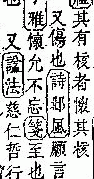 其有核者懷其核
又傷也詩邶風願言
雅懷允不忘箋至也
又諡法慈仁哲行